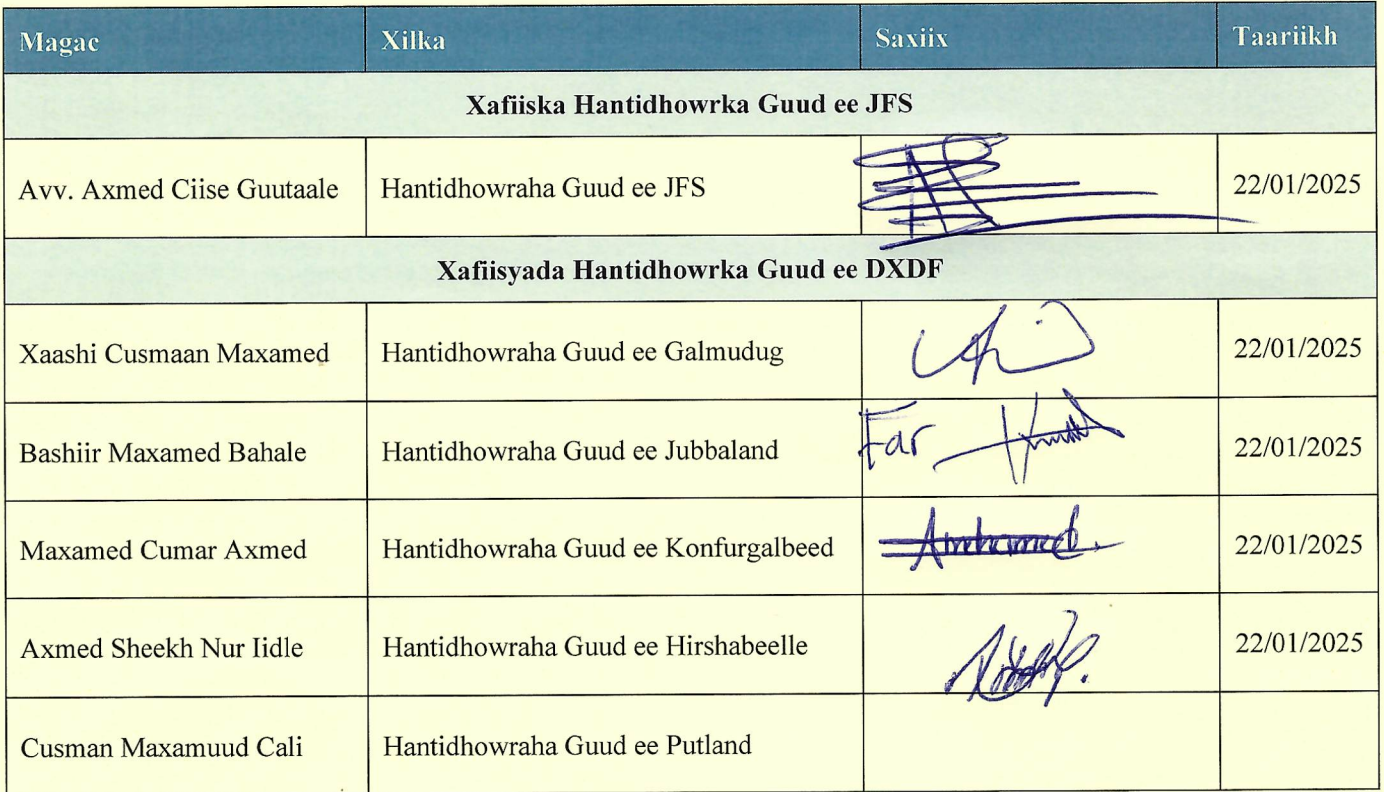 Magac Xilka Saxiix Taariikh
Xafiiska Hantidhowrka Guud ee JFS
Avv. Axmed Ciise Guutaale Hantidhowraha Guud ee JFS 22/01/2025
Xafiisyada Hantidhowrka Guud ee DXDF
Xaashi Cusmaan Maxamed Hantidhowraha Guud ee Galmudug 22/01/2025
Bashiir Maxamed Bahale Hantidhowraha Guud ee Jubbaland Far 22/01/2025
Maxamed Cumar Axmed Hantidhowraha Guud ee Konfurgalbeed 22/01/2025
Axmed Sheekh Nur Iidle Hantidhowraha Guud ee Hirshabeelle 22/01/2025
Cusman Maxamuud Cali Hantidhowraha Guud ee Putland